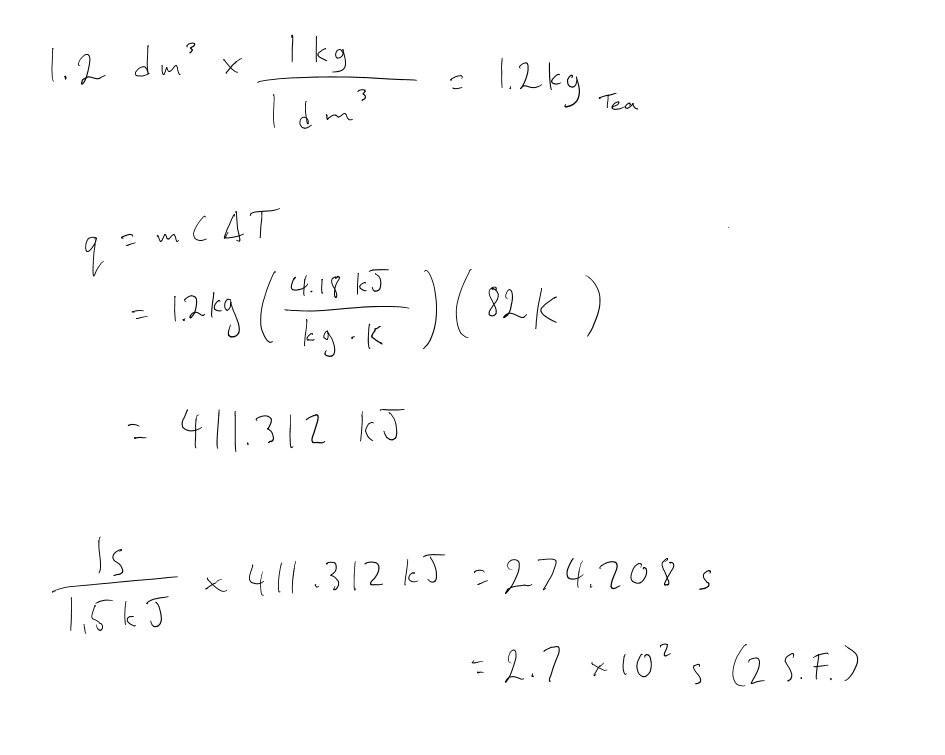 1.2 dm³ × 1 kg / 1 dm³ = 1.2kg Tea
q = mCΔT
= 1.2kg (4.18 kJ / kg·K) (82K)
= 411.312 kJ
1s / 1.5kJ × 411.312 kJ = 274.208 s
= 2.7 ×10² s (2 S.F.)